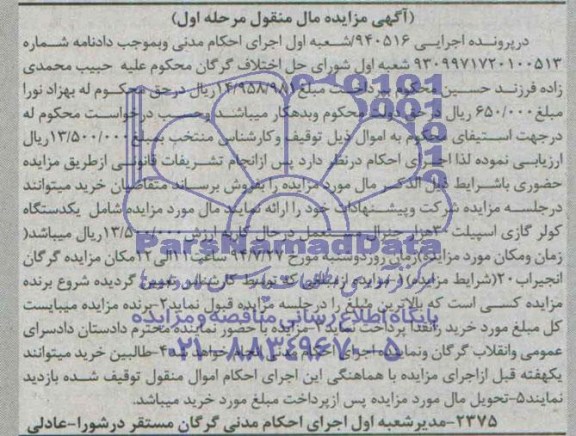 (آگهی مزایده مال منقول مرحله اول)
درپرونده اجرایی ۹۴۰۵۱۶/شعبه اول اجرای احکام مدنی وبموجب دادنامه شماره
۹۳۰۹۹۷۱۷۲۰۱۰۰۵۱۳ شعبه اول شورای حل اختلاف گرگان محکوم علیه حبیب محمدی
زاده فرزند حسین محکوم بپرداخت مبلغ ۱۴/۹۵۸/۹۸۱ریال درحق محکوم له بهزاد نورا
مبلغ ۶۵۰/۰۰۰ ریال درحق دولت محکوم وبدهکار میباشد وحسب درخواست محکوم له
درجهت استیفای محکوم به اموال ذیل توقیف وکارشناس منتخب بمبلغ ۱۳/۵۰۰/۰۰۰ریال
ارزیابی نموده لذا اجرای احکام درنظر دارد پس ازانجام تشریفات قانونی ازطریق مزایده
حضوری باشرایط ذیل الذکر مال مورد مزایده را بفروش برساند متقاضیان خرید میتوانند
درجلسه مزایده شرکت وپیشنهادات خود را ارائه نمایند مال مورد مزایده شامل یکدستگاه
کولر گازی اسپیلت ۳۰هزار جنرال مستعمل درحال کار به ارزش ۱۳/۵۰۰/۰۰۰ریال میباشد(
زمان ومکان مورد مزایده)زمان روزدوشنبه مورخ ۹۴/۷/۲۷ ساعت ۱۱الی ۱۲مکان مزایده گرگان
انجیراب ۲۰(شرایط مزایده)۱-مزایده ازمبلغی که توسط کارشناس تعیین گردیده شروع برنده
مزایده کسی است که بالاترین مبلغ را درجلسه مزایده قبول نماید۲-برنده مزایده میبایست
کل مبلغ مورد خرید رانقدا پرداخت نماید۳-مزایده باحضور نماینده محترم دادستان دادسرای
عمومی وانقلاب گرگان ونماینده اجرای احکام مدنی انجام خواهد شد۴-طالبین خرید میتوانند
یکهفته قبل ازاجرای مزایده با هماهنگی این اجرای احکام اموال منقول توقیف شده بازدید
نمایند۵-تحویل مال مورد مزایده پس ازپرداخت مبلغ مورد خرید میباشد.
۲۳۷۵-مدیرشعبه اول اجرای احکام مدنی گرگان مستقر درشورا-عادلی
ParsNamadData
پایگاه اطلاع رسانی مناقصه و مزایده
۰۲۱-۸۸۳۴۹۶۷۰-۵